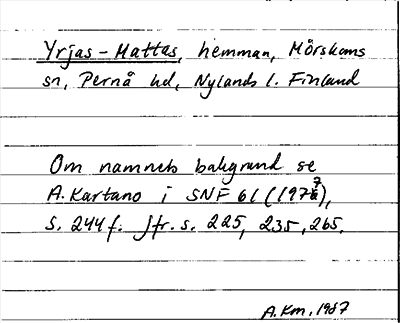 Yrjas-Mattas, hemman, Mörskoms
sn, Pernå hd, Nylands l. Finland
Om namnets bakgrund se
A. Kartano i SNF 61 (1977),
s. 244 f. Jfr. s. 225, 235, 265.
A.Km. 1987